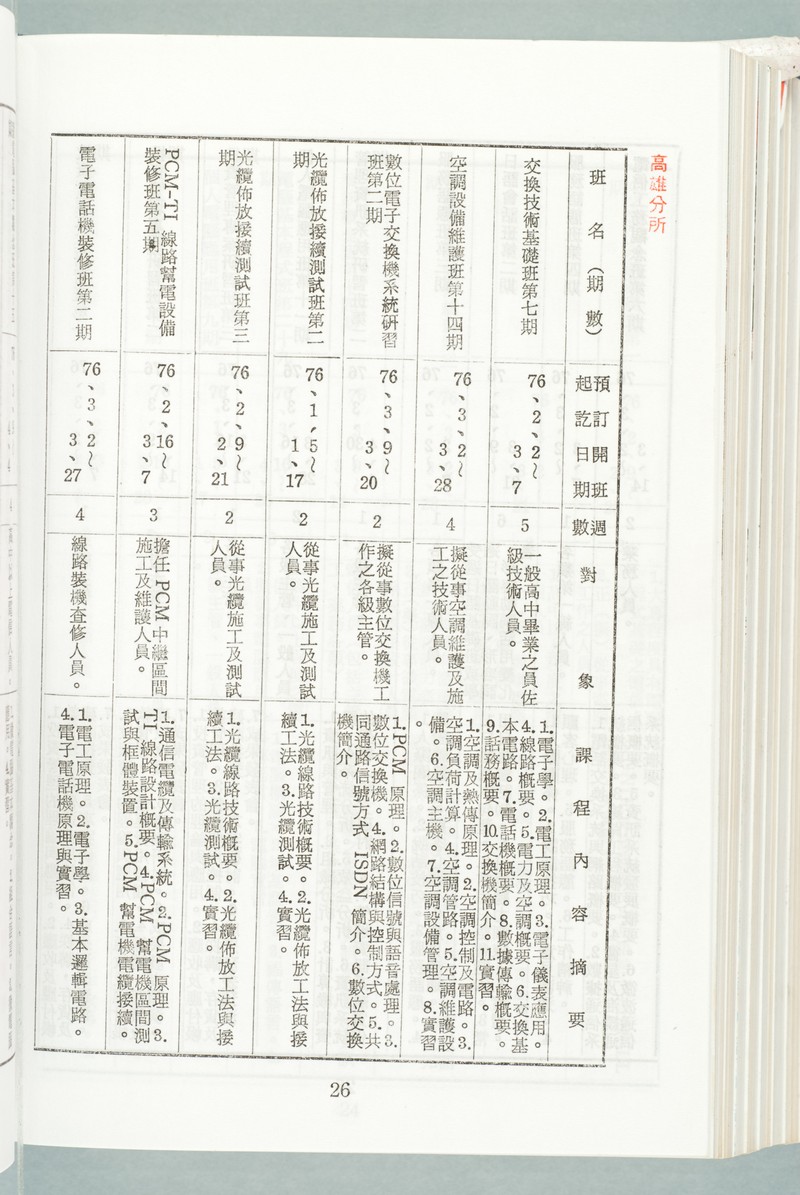 高雄分所
班名（期數）
預訂開班
起訖日期
週數
對象
課程內容摘要
交換技術基礎班第七期
76、2、2～
3、7
5
一般高中畢業之員佐
級技術人員。
1.電子學。2.電工原理。3.電子儀表應用。
4.線路概要。5.電力及空調概要。6.交換基
本電路。7.電話機概要。8.數據傳輸概要。
9.話務概要。10.交換機簡介。11.實習。
空調設備維護班第十四期
76、3、2～
3、28
4
擬從事空調維護及施
工之技術人員。
1.空調及熱傳原理。2.空調控制及電路。3.
空調負荷計算。4.空調管路。5.空調維護設
備。6.空調主機。7.空調設備管理。8.實習
。
數位電子交換機系統研習
班第二期
76、3、9～
3、20
2
擬從事數位交換機工
作之各級主管。
1.PCM 原理。2.數位信號與語音處理。3.
數位交換機。4.網路結構與控制方式。5.共
同通路信號方式 ISDN 簡介。6.數位交換
機簡介。
光纜佈放接續測試班第二
期
76、1、5～
1、17
2
從事光纜施工及測試
人員。
1.光纜線路技術概要。2.光纜佈放工法與接
續工法。3.光纜測試。4.實習。
光纜佈放接續測試班第三
期
76、2、9～
2、21
2
從事光纜施工及測試
人員。
1.光纜線路技術概要。2.光纜佈放工法與接
續工法。3.光纜測試。4.實習。
PCM-TI 線路幫電設備
裝修班第五期
76、2、16～
3、7
3
擔任 PCM 中繼區間
施工及維護人員。
1.通信電纜及傳輸系統。2.PCM 原理。3.
TI 線路設計概要。4.PCM 幫電機區間測
試與框體裝置。5.PCM 幫電機電纜接續。
電子電話機裝修班第二期
76、3、2～
3、27
4
線路裝機查修人員。
1.電工原理。2.電子學。3.基本邏輯電路。
4.電子電話機原理與實習。
26